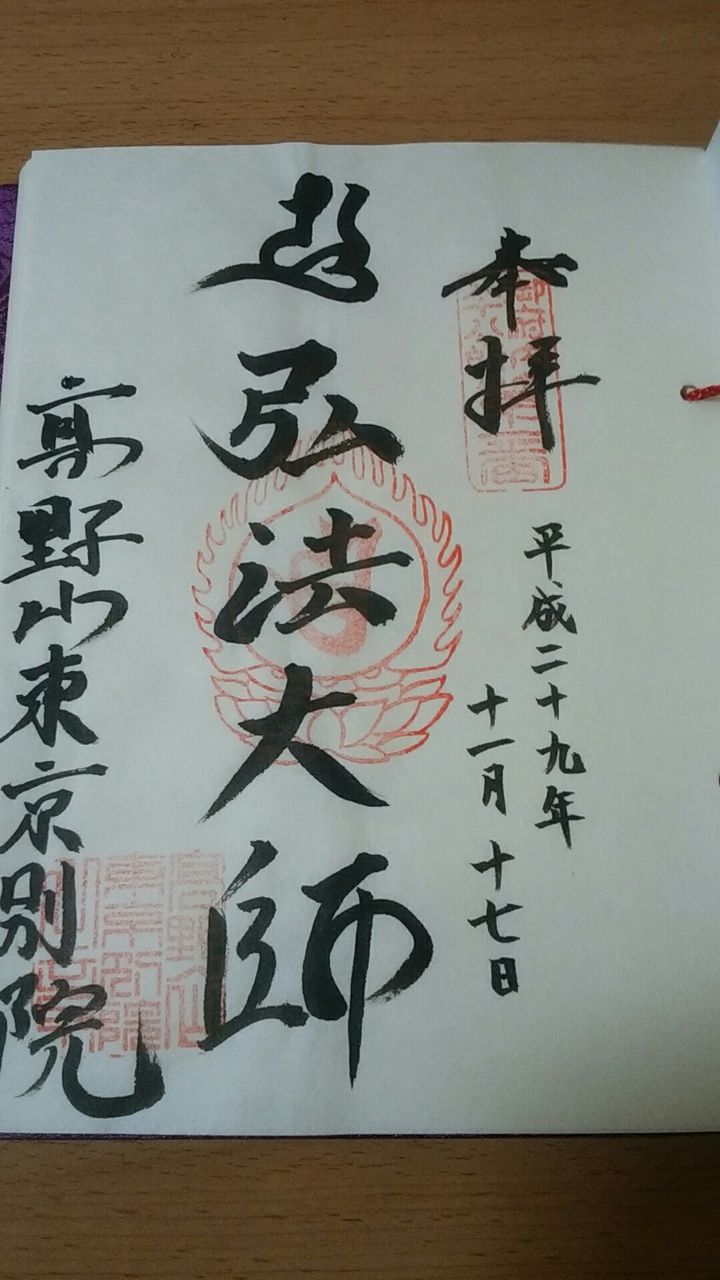 奉拝
平成二十九年
十一月十七日
弘法大師
高野山東京別院